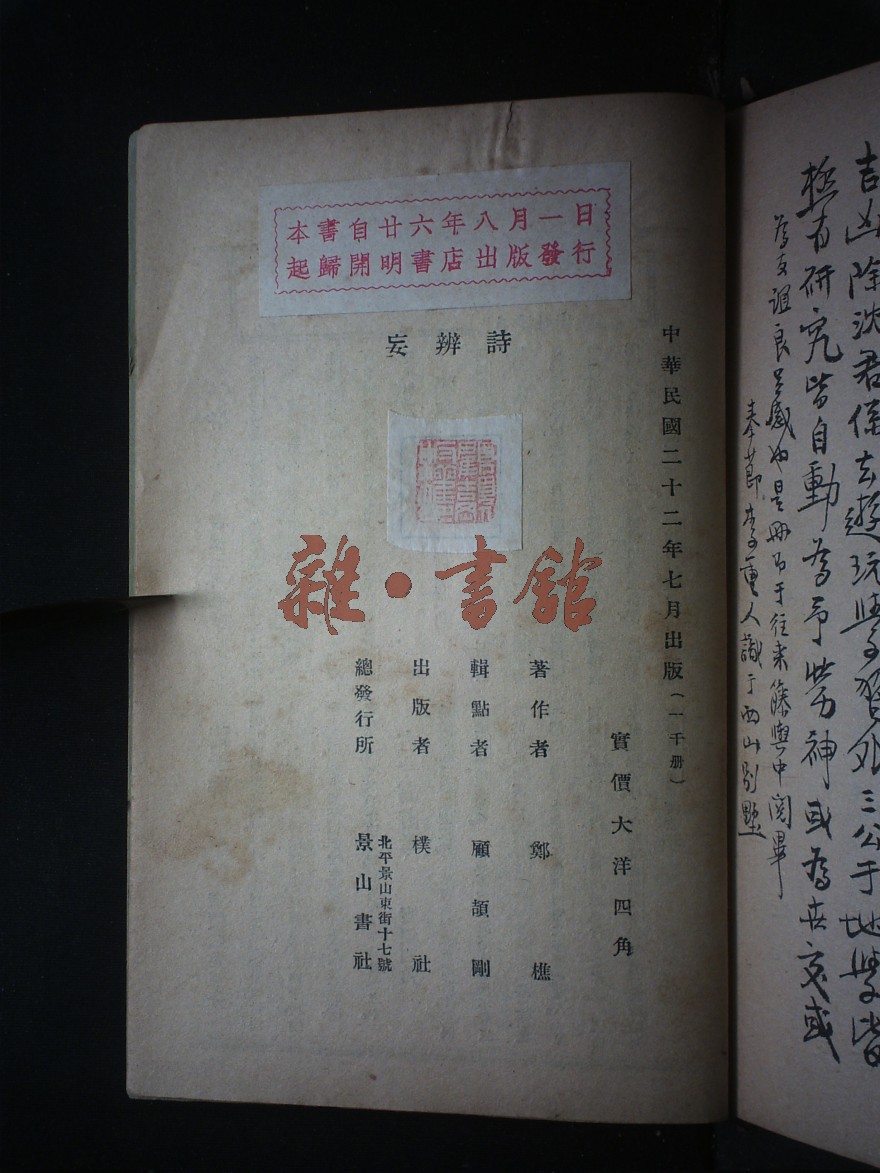 本書自廿六年八月一日
起歸開明書店出版發行
詩辨妄
中華民國二十二年七月出版(一千册)
實價大洋四角
著作者 鄭樵
輯點者 顧頡剛
出版者 樸社
北平景山東街十七號
總發行所 景山書社
雜·書館
吉凶除沈君係去遊玩學習外三公于地學皆
極有研究皆自動為予勞神或為世交或
為友誼良足感也是冊吊于往来篠輿中閱畢
奉節李重人識于西山別墅